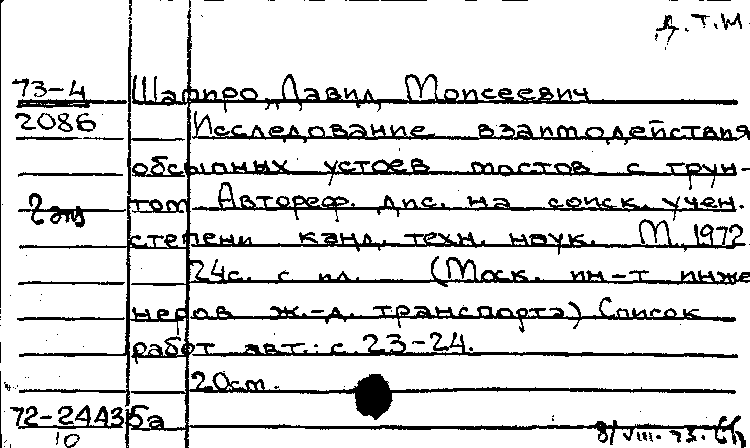 Д.Т.М.
73-4 Шапиро, Давид Моисеевич
2086 Исследование взаимодействия
обсыпных устоев мостов с грун-
2 экз том. Автореф. дис. на соиск. учен.
степени канд. техн. наук. М., 1972
24с. с ил. (Моск. ин-т инже
неров ж.-д. транспорта) Список
работ авт.: с. 23-24.
20см.
72-24435а
10
8/VIII-73.